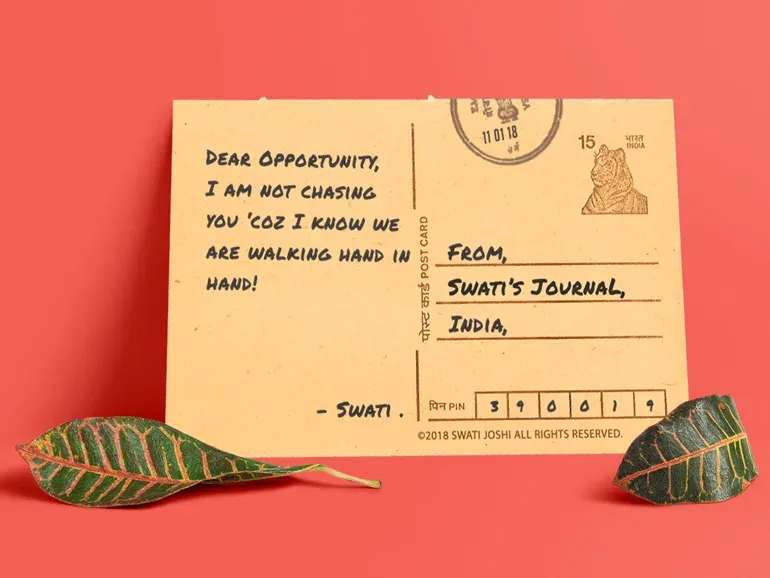 DEAR OPPORTUNITY,
I AM NOT CHASING
YOU 'COZ I KNOW WE
ARE WALKING HAND IN
HAND!
- SWATI .
पोस्ट कार्ड POST CARD
11 01 18
15
भारत
INDIA
FROM,
SWATI'S JOURNAL,
INDIA,
पिन PIN 3 9 0 0 1 9
©2018 SWATI JOSHI ALL RIGHTS RESERVED.